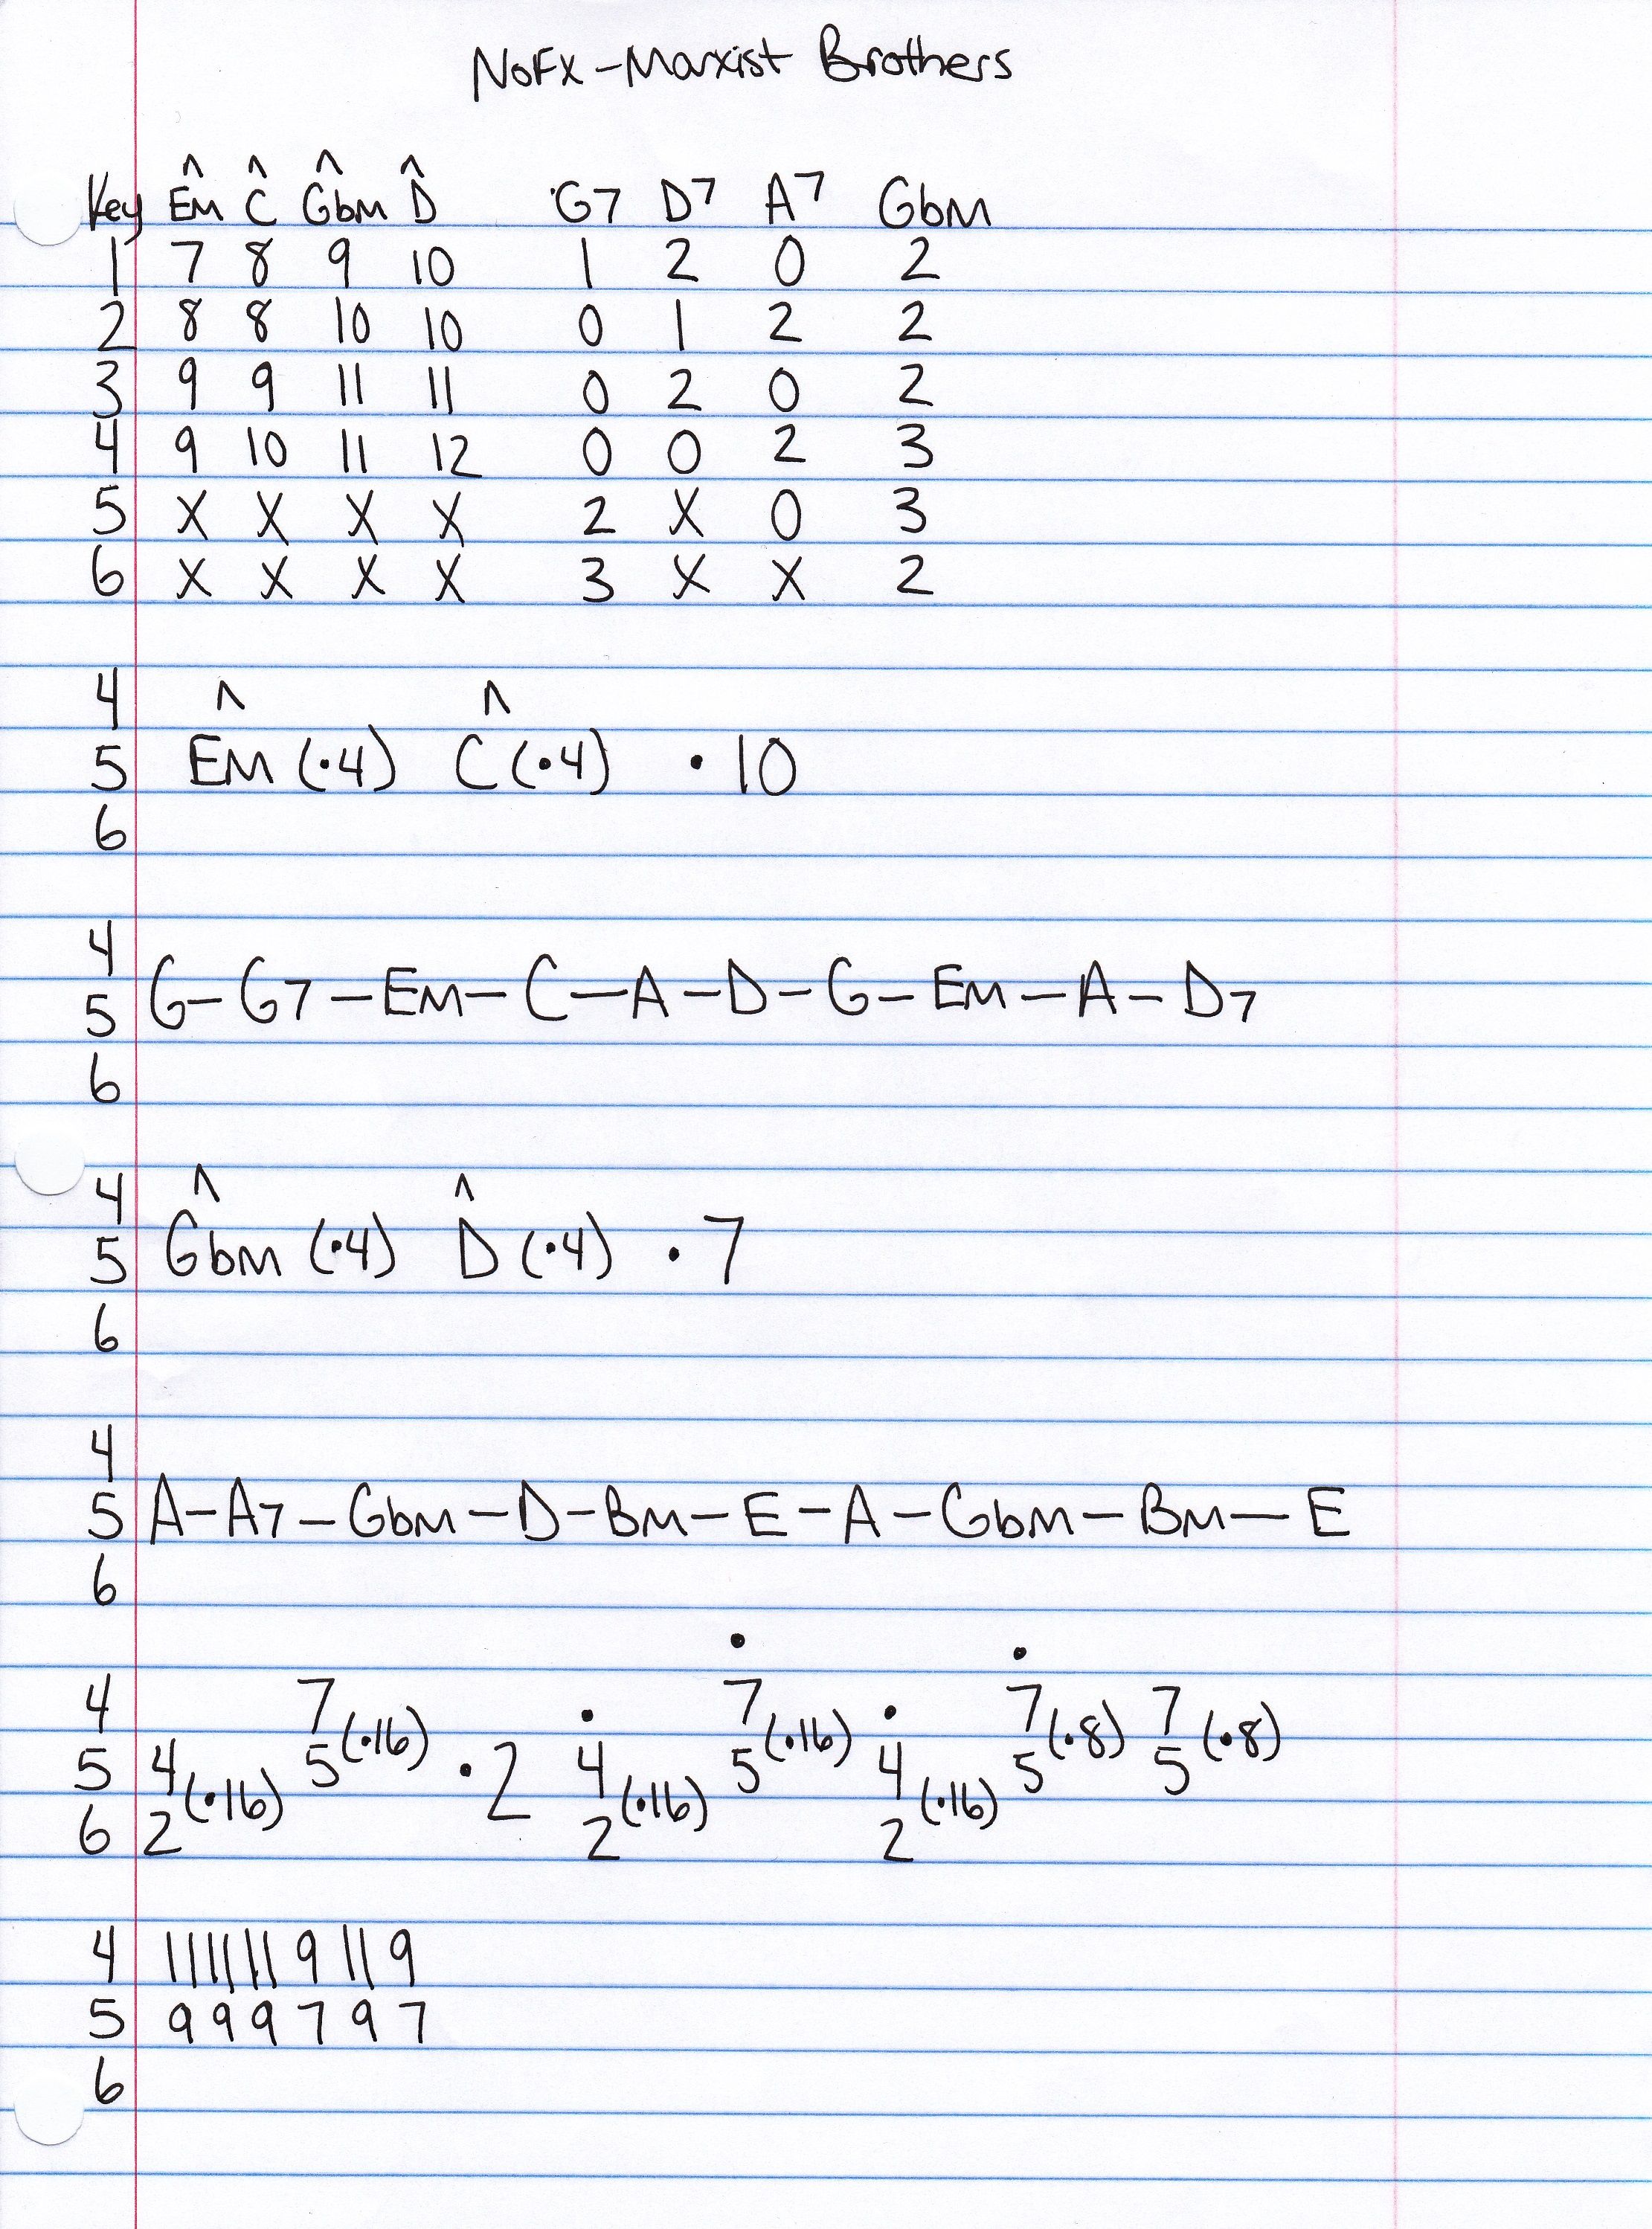 NOFX - Marxist Brothers
^ ^ ^ ^
Key Em C Gbm D G7 D7 A7 Gbm
1 7 8 9 10 1 2 0 2
2 8 8 10 10 0 1 2 2
3 9 9 11 11 0 2 0 2
4 9 10 11 12 0 0 2 3
5 X X X X 2 X 0 3
6 X X X X 3 X X 2
4 ^ ^
5 Em (·4) C (·4) · 10
6
4
5 G - G7 - Em - C - A - D - G - Em - A - D7
6
4 ^ ^
5 Gbm (·4) D (·4) · 7
6
4
5 A - A7 - Gbm - D - Bm - E - A - Gbm - Bm - E
6
· ·
4 7 · 7 · 7 7
5 4 (·16) 5 (·16) · 2 4 (·16) 5 (·16) 4 (·16) 5 (·8) 5 (·8)
6 2 2 2
4 11 11 11 9 11 9
5 9 9 9 7 9 7
6